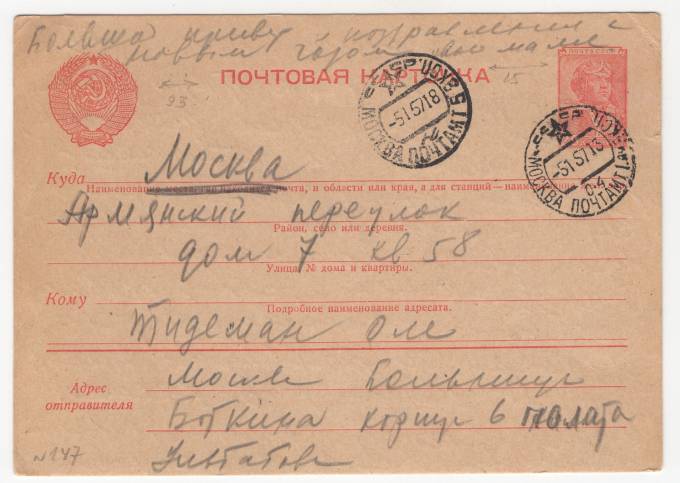 Больша привет поздравления с
новым годом твоей маме
ПОЧТОВАЯ КАРТОЧКА
ПОЧТА СССР
93
15
МОСКВА ПОЧТАМТ
-515718
МОСКВА ПОЧТАМТ
-515713
Куда Москва
Наименование места, где находится почта, и области или края, а для станций—наименование
Армянский переулок
Район, село или деревня.
дом 7 кв 58
Улица, № дома и квартиры.
Кому
Подробное наименование адресата.
Тидеман Оле
Адрес отправителя
Москва Больница
Боткина корпус 6 палата
N147